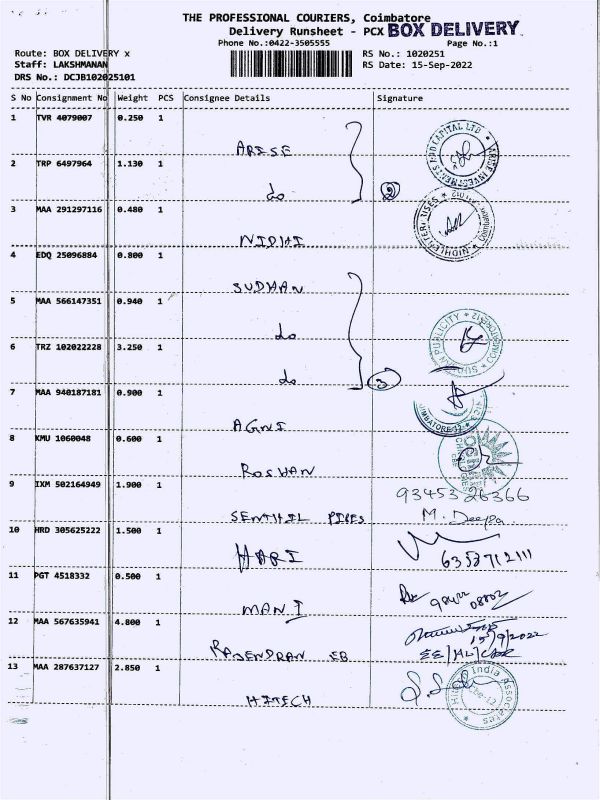 THE PROFESSIONAL COURIERS, Coimbatore
Delivery Runsheet - PCX BOX DELIVERY
Phone No.:0422-3505555 Page No.:1
Route: BOX DELIVERY x RS No.: 1020251
Staff: LAKSHMANAN RS Date: 15-Sep-2022
DRS No.: DCJB102025101
S No Consignment No Weight PCS Consignee Details Signature
1 TVR 4079007 0.250 1
ARISE
ARISE INVESTMENTS AND CAPITAL LTD
2 TRP 6497964 1.130 1
do 2
3 MAA 291297116 0.480 1
NIDHI
NIDHI ENTERPRISES
4 EDQ 25096884 0.800 1
SUDHAN
5 MAA 566147351 0.940 1
do
SUDHAN PUBLICITY * COIMBATORE-12
6 TRZ 102022228 3.250 1
do 3
7 MAA 940187181 0.900 1
AGNI
8 KMU 1060048 0.600 1
ROSHAN
9 IXM 502164949 1.900 1 93453 26366
SENTHIL PIPES M. Deepa
10 HRD 305625222 1.500 1
HARI 6353712111
11 PGT 4518332 0.500 1
MANI
12 MAA 567635941 4.800 1 15/9/2022
RAJENDRAN EB
13 MAA 287637127 2.850 1
HITECH
India Associates